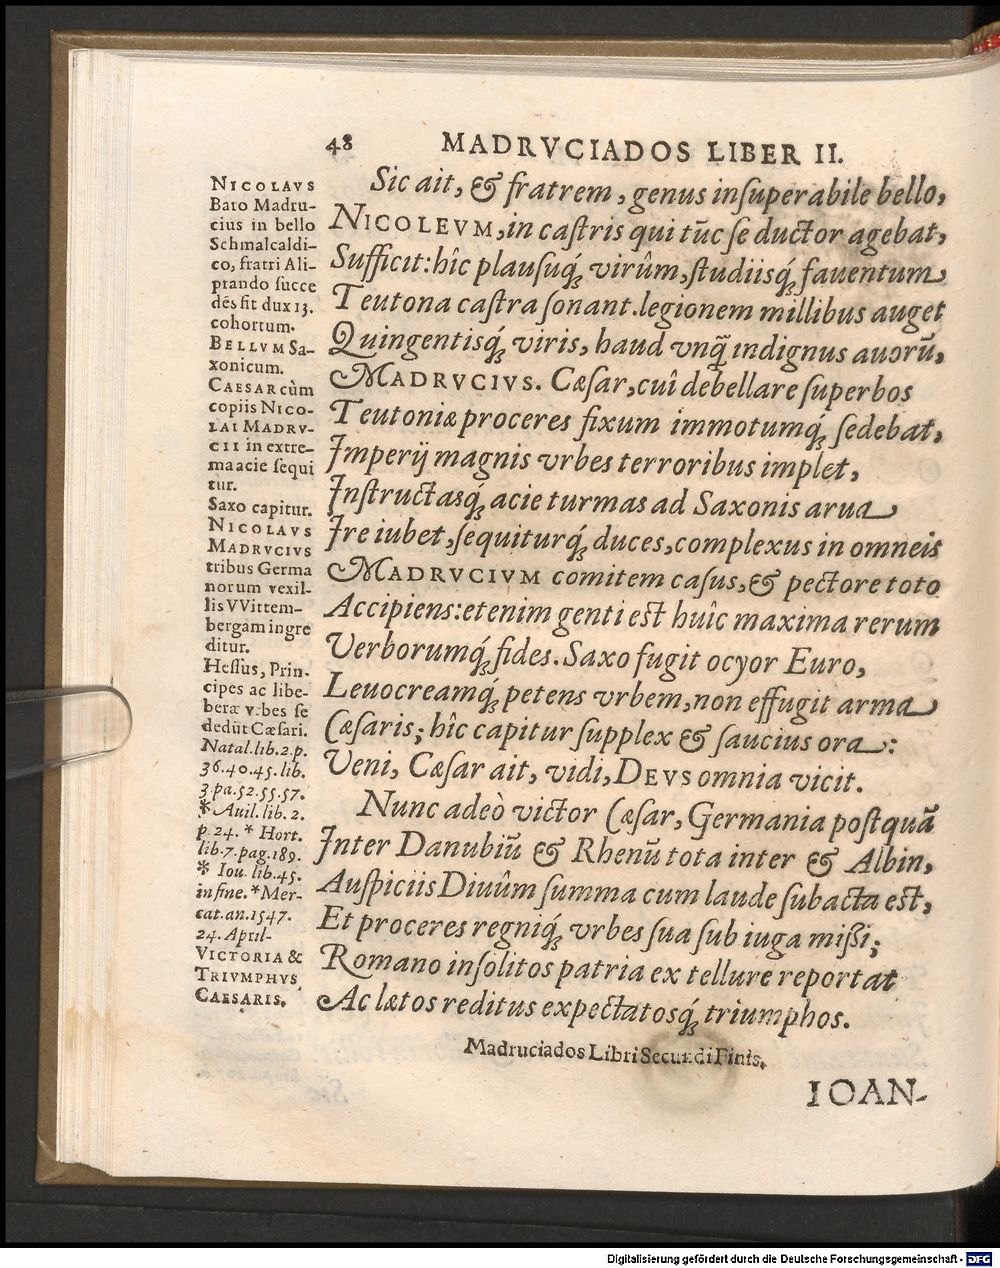 48 MADRVCIADOS LIBER II.
NICOLAVS
Baro Madru-
cius in bello
Schmalcaldi-
co, fratri Ali-
prando succe
dēs fit dux 13.
cohortum.
BELLVM Sa-
xonicum.
CAESAR cùm
copiis NICO-
LAI MADRV-
CII in extre-
ma acie sequi
tur.
Saxo capitur.
NICOLAVS
MADRVCIVS
tribus Germa
norum vexil-
lis VVittem-
bergam ingre
ditur.
Hessus, Prin-
cipes ac libe-
beræ vrbes se
dedūt Cæsari.
Natal. lib. 2. p.
36. 40. 45. lib.
3. pa. 52. 55. 57.
* Auil. lib. 2.
p. 24. * Hort.
lib. 7. pag. 189.
* Iou. lib. 45.
in fine. * Mer-
cat. an. 1547.
24. April-
VICTORIA &
TRIVMPHVS
CAESARIS.
Sic ait, & fratrem, genus insuperabile bello,
NICOLEVM, in castris qui tūc se ductor agebat,
Sufficit: hîc plausuq́; virûm, studiisq́; fauentum
Teutona castra sonant. legionem millibus auget
Quingentisq́; viris, haud vnq̃ indignus auorū,
MADRVCIVS. Cæsar, cuî debellare superbos
Teutoniæ proceres fixum immotumq́; sedebat,
Imperij magnis vrbes terroribus implet,
Instructasq́; acie turmas ad Saxonis arua
Ire iubet, sequiturq́; duces, complexus in omneis
MADRVCIVM comitem casus, & pectore toto
Accipiens: etenim genti est huîc maxima rerum
Verborumq́; fides. Saxo fugit ocyor Euro,
Leuocreamq́; petens vrbem, non effugit arma
Cæsaris; hîc capitur supplex & saucius ora:
Veni, Cæsar ait, vidi, DEVS omnia vicit.
Nunc adeò victor Cæsar, Germania postquā
Inter Danubiū & Rhenū tota inter & Albin,
Auspiciis Diuûm summa cum laude subacta est,
Et proceres regniq́; vrbes sua sub iuga missi;
Romano insolitos patria ex tellure reportat
Ac lætos reditus expectatosq́; triumphos.
Madruciados Libri Secundi Finis.
IOAN-
Digitalisierung gefördert durch die Deutsche Forschungsgemeinschaft - DFG